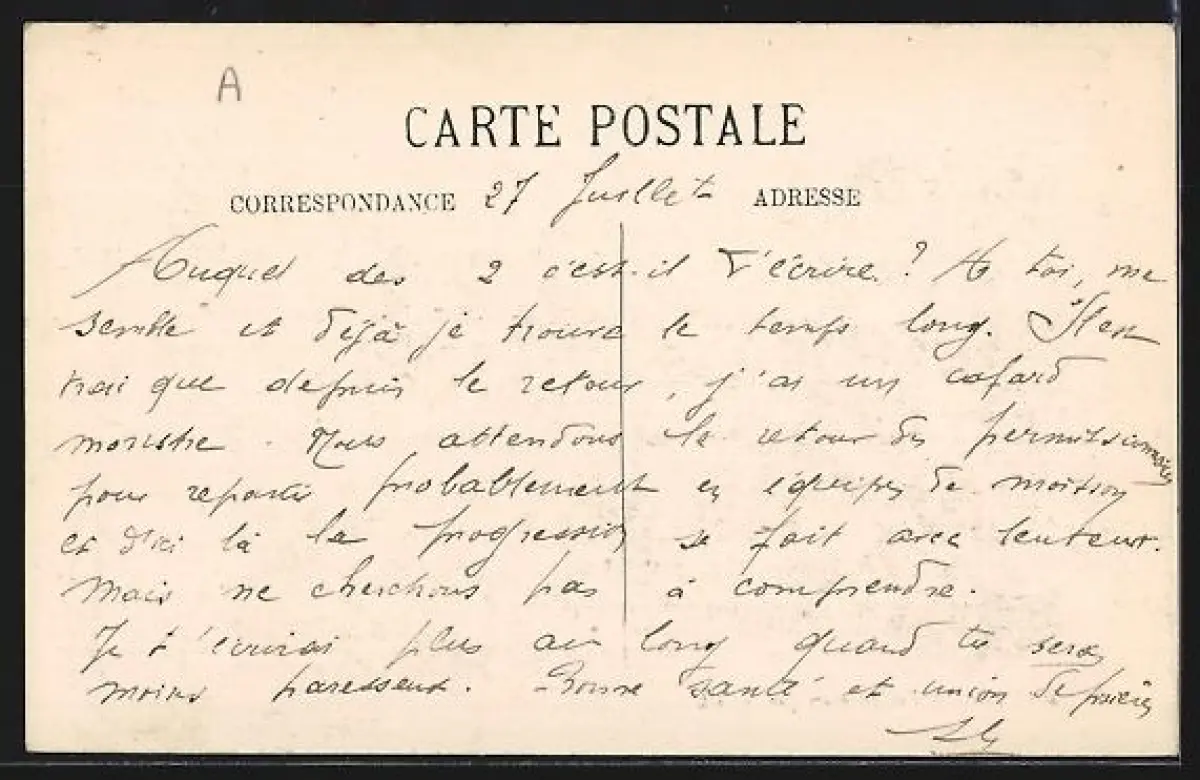 A
CARTE POSTALE
CORRESPONDANCE 27 Juillet ADRESSE
Auquel des 2 c'est-il d'écrire ? A toi, me
semble et déjà je trouve le temps long. Il est
vrai que depuis le retour, j'ai un cafard
monstre. Nous attendons le retour des permissionnaires
pour repartir probablement en équipes de moisson
et d'ici là la progression se fait avec lenteur.
Mais ne cherchons pas à comprendre.
Je t'écrirai plus au long quand tu seras
moins paresseux. Bonne santé et union de prières